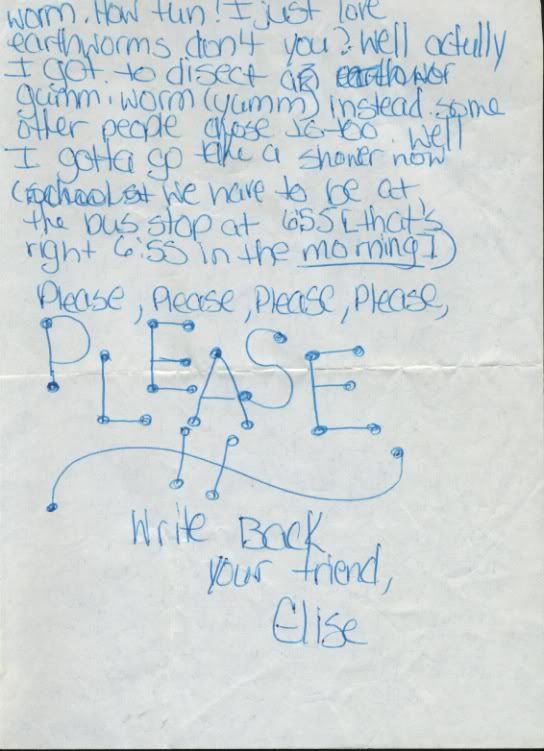 worm. How fun! I just love
earthworms don't you? Well actully
I got to disect a
gummi worm (yumm) instead. some
other people chose to too. Well
I gotta go take a shower now
we have to be at
the bus stop at 6:55 [that's
right 6:55 in the morning!])
Please, Please, Please, Please,
PLEASE
!!
Write Back
your friend,
Elise